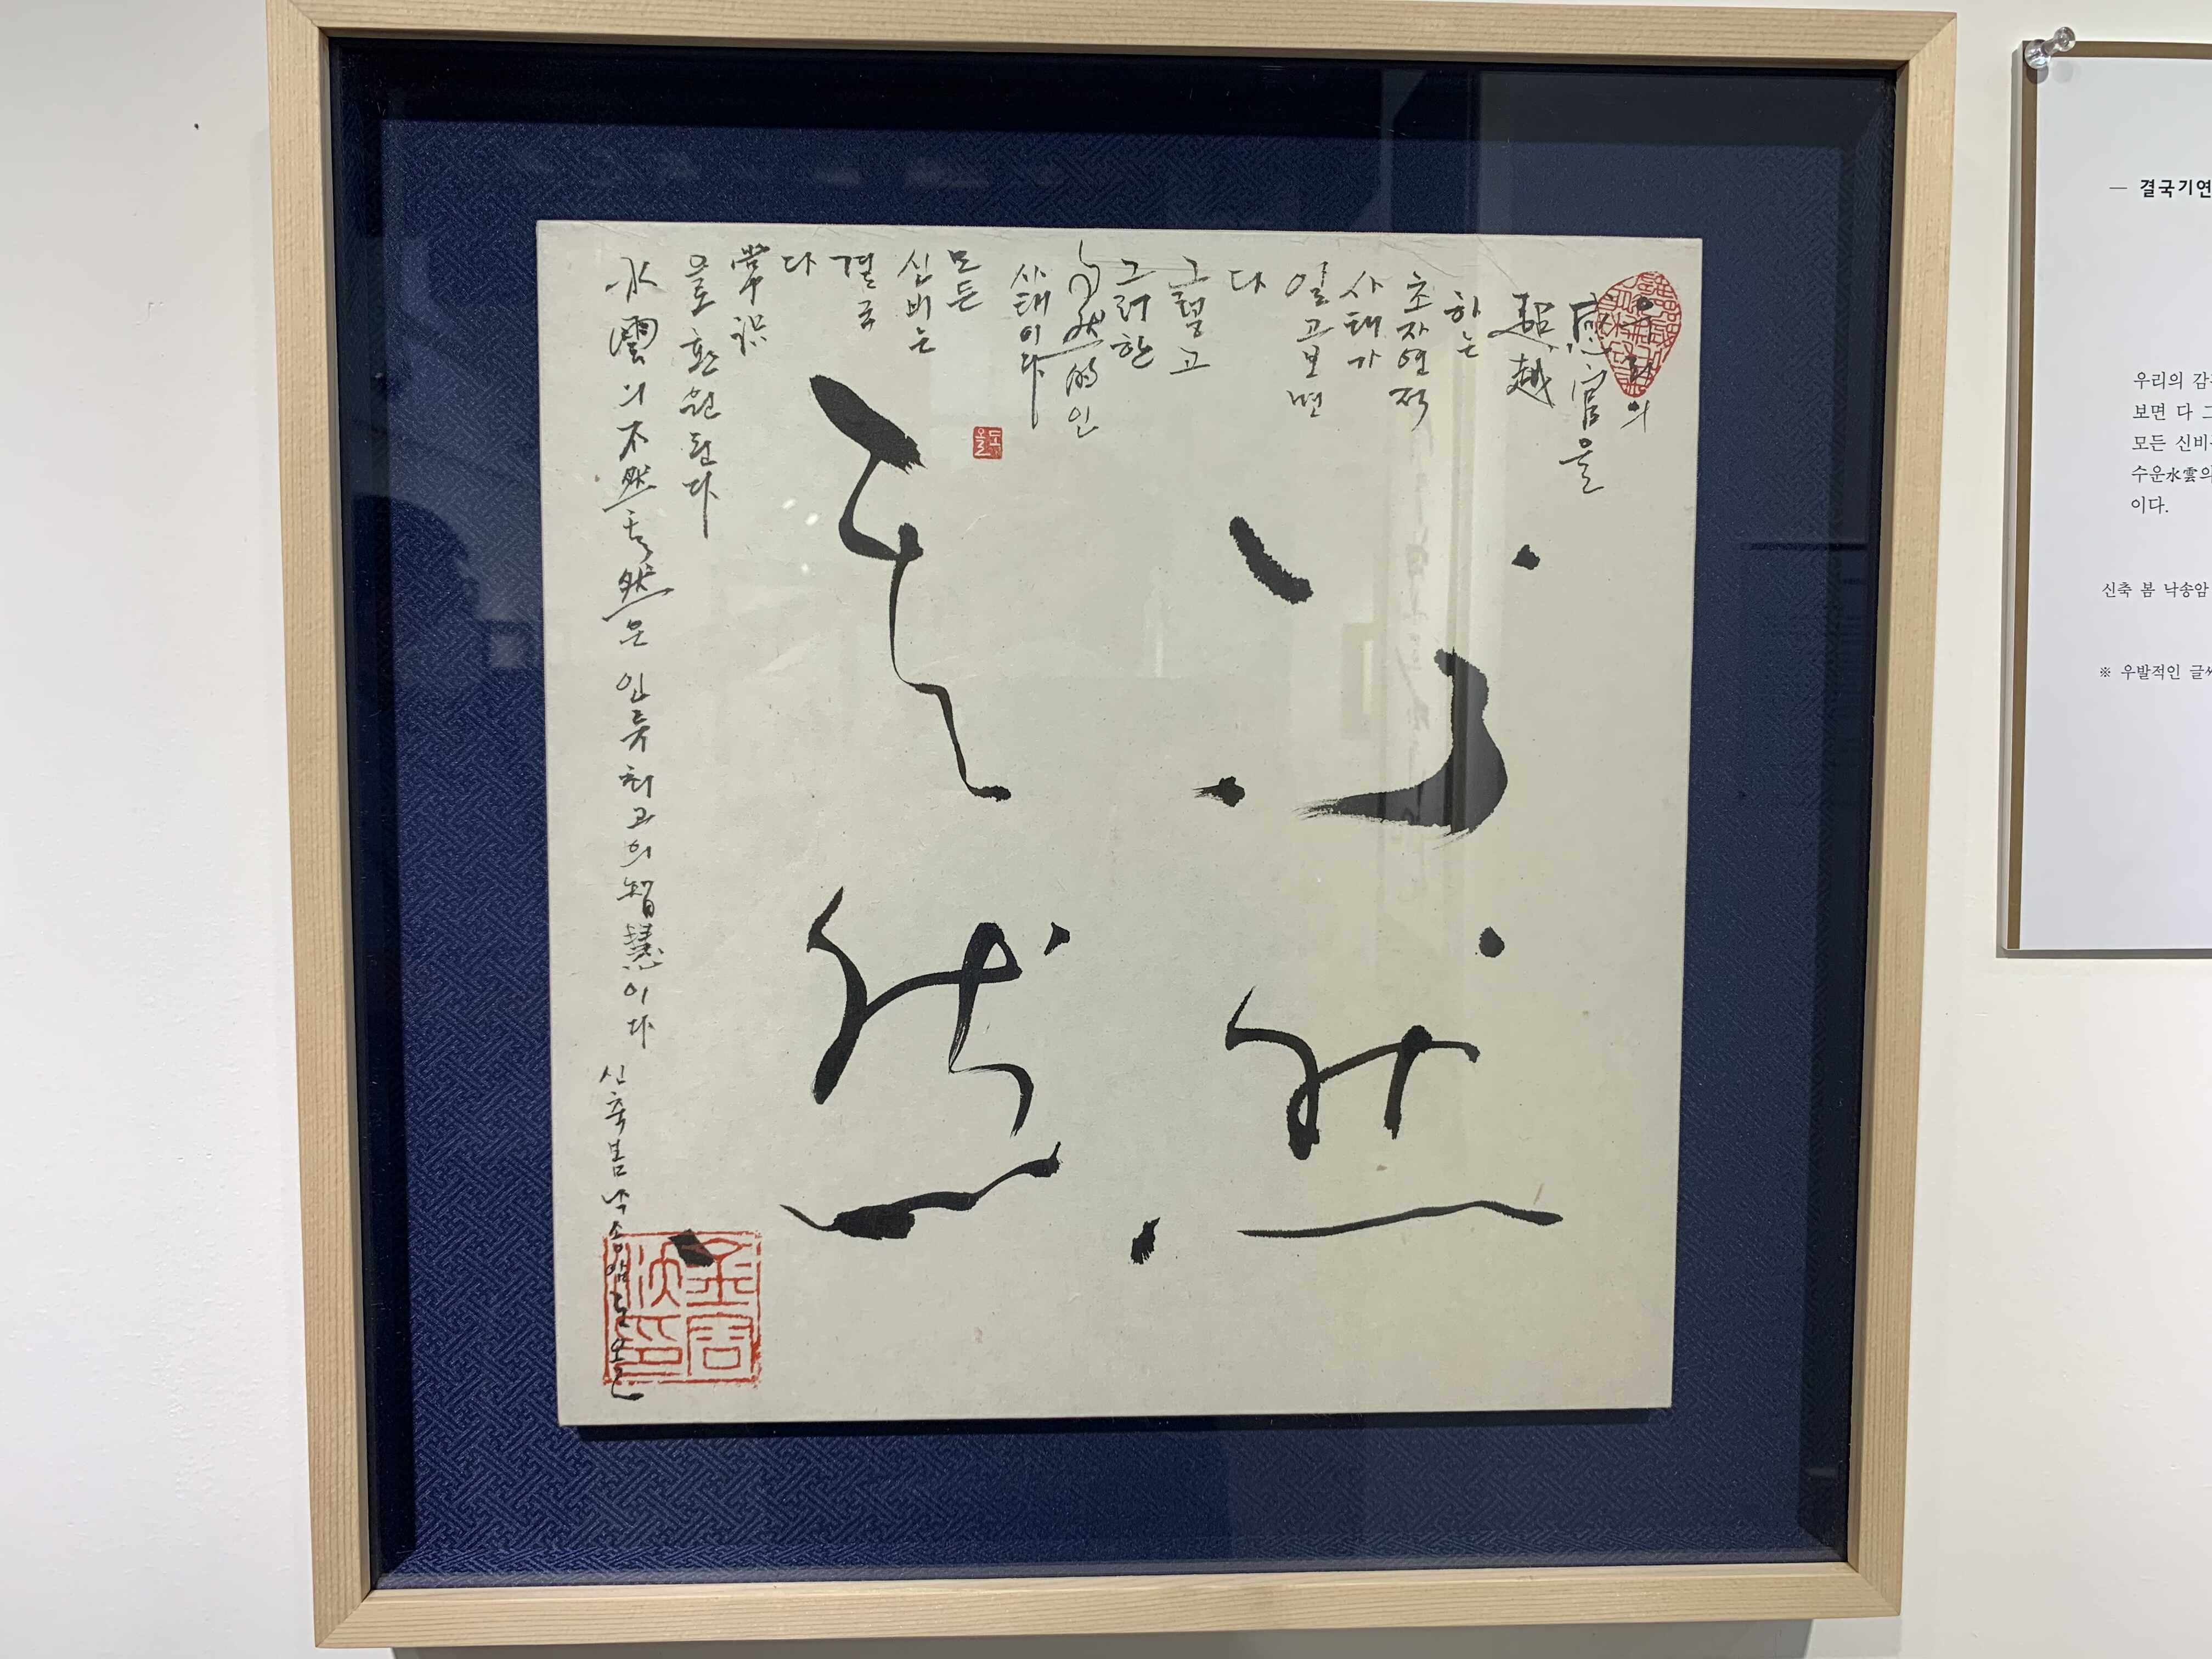 우리의
感官을
超越
하는
초자연적
사태가
알고보면
다
그렇고
그러한
自然的인
사태이다
모든
신비는
결국
다
常識
으로 환원된다
水雲의 不然其然은 인류 최고의 智慧이다
신축 봄 낙송암 도올
不然
其然
도올
金容沃印
— 결국기연
우리의 감
보면 다 그
모든 신비
수운水雲의
이다.
신축 봄 낙송암
※ 우발적인 글씨